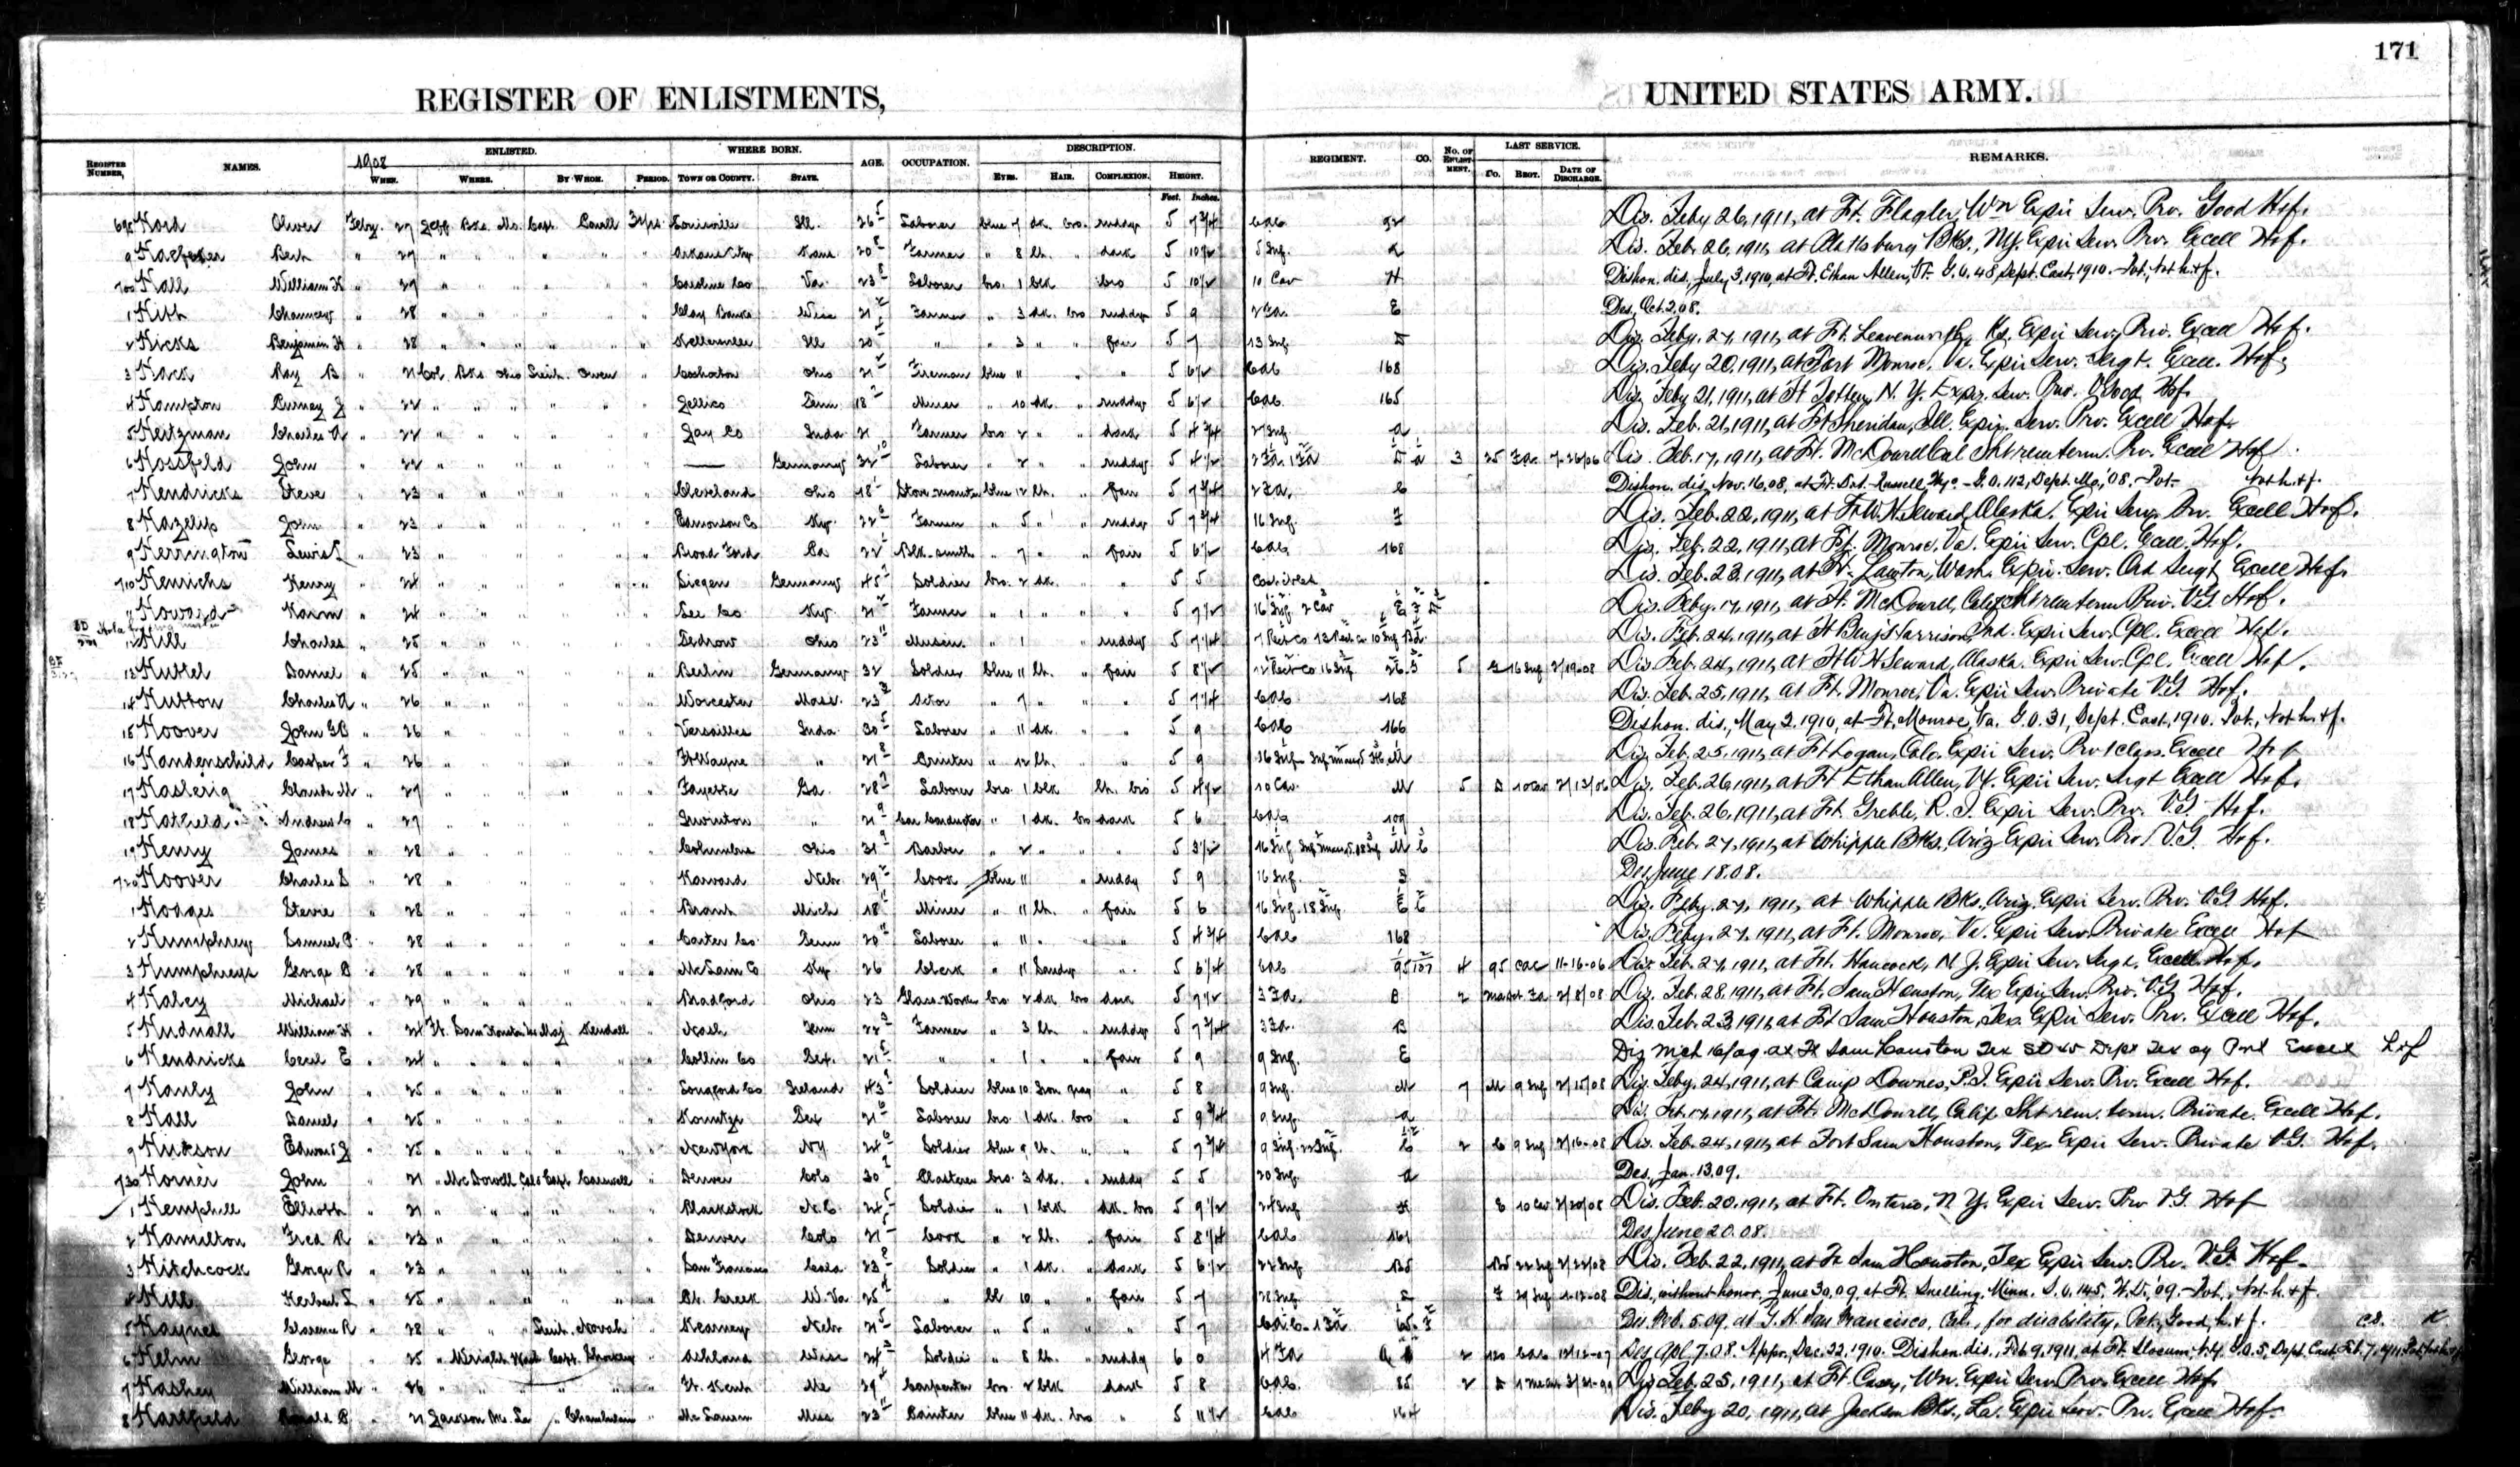 171
REGISTER OF ENLISTMENTS, UNITED STATES ARMY.
REGISTER NUMBER, NAMES. ENLISTED. WHERE BORN. AGE. OCCUPATION. DESCRIPTION. REGIMENT. CO. No. OF ENLISTMENT. LAST SERVICE. REMARKS.
1908
WHEN. WHERE. BY WHOM. PERIOD. TOWN OR COUNTY. STATE. EYES. HAIR. COMPLEXION. HEIGHT. CO. REGT. DATE OF DISCHARGE.
Feet. Inches.
698 Oliver Feby. 27 Jeff Bks. Mo. Capt. 3 yrs. Louisville Ill. 26 Laborer blue 7 dk. bro. ruddy 5 7 3/4 CAC 92 Dis. Feby 26, 1911, at Ft. Flagler, Wn Expir Serv. Prv. Good H&f.
9 Bert " 27 " " " " " Arkans City Kans 20 Farmer " 8 lt. " dark 5 10 1/2 5 Inf. Dis. Feb. 26, 1911, at Plattsburg Bks., NY. Expir Serv. Prv. Excell H&f.
700 Hall William H " 27 " " " " " Caroline Co Va. 23 Laborer bro. 1 blk bro 5 10 1/2 10 Cav H Dishon. dis. July 3, 1910, at Ft. Ethan Allen, Vt. G.O. 48, Dept. East, 1910. Pvt., Not h.&f.
1 Hibb Chauncey " 28 " " " " " Clay Banks Wisc 21 Farmer " 3 dk. bro ruddy 5 9 2 F.A. E Des. Oct. 2, 08.
2 Hicks Benjamin H " 28 " " " " " Kellerville Ill 20 " " 3 " " fair 5 7 13 Inf. D Dis. Feby. 27, 1911, at Ft. Leavenworth, Ks. Expir Serv. Priv. Excell H&f.
3 Hack Ray B " 21 Col. Bks Ohio Lieut. Owen " Coshocton Ohio 21 Fireman blue 11 " " 5 6 1/2 CAC 168 Dis. Feby 20, 1911, at Fort Monroe, Va. Expir Serv. Sergt. Excell. H&f.
4 Hampton Burney J " 22 " " " " " Jellico Tenn 18 Miner " 10 dk. " ruddy 5 6 1/2 CAC 165 Dis. Feby 21, 1911, at Ft Totten, N. Y. Expir. Serv. Prv. Good H&f.
5 Heitzman Charles A " 22 " " " " " Jay Co Inda 21 Farmer bro 2 " " dark 5 4 3/4 27 Inf. A Dis. Feb. 21, 1911, at Ft Sheridan, Ill. Expir. Serv. Prv. Excell H&f.
6 Hossfeld John " 22 " " " " " — Germany 32 Laborer " 2 " " ruddy 5 4 1/2 2 F.A. 1 F.A. D A 3 25 F.A. 7-26/06 Dis. Feb. 17, 1911, at Ft. McDowell Cal Sht rem term. Prv. Excell H&f
7 Hendricks Steve " 23 " " " " " Cleveland Ohio 18 blue 12 lt. " fair 5 7 3/4 2 F.A. C Dishon. dis. Nov. 16, 08, at Ft. D.A. Russell, Wyo. G.O. 112, Dept. Mo., '08. Pvt. Not h.&f.
8 Hazelip John " 23 " " " " " Edmonson Co Ky. 22 Farmer " 5 " " ruddy 5 7 3/4 16 Inf. F Dis. Feb. 22, 1911, at Ft W.H. Seward, Alaska. Expir Serv. Prv. Excell H&f.
9 Herrington Lewis L " 23 " " " " " Broad Ford Pa 22 Blk. smith " 7 " " fair 5 6 1/2 CAC 168 Dis. Feb. 22, 1911, at Ft. Monroe, Va. Expir Serv. Cpl. Excell. H&f.
710 Henrichs Henry " 24 " " " " " Siegen Germany 45 Soldier bro. 2 dk. " " 5 5 Dis. Feb. 23, 1911, at Ft. Lawton, Wash. Expir. Serv. Ord Sergt Excell H&f.
11 Howard " 24 " " " " " Lee Co Ky. 21 Farmer " 1 " " " 5 7 1/2 16 Inf. 2 Cav Dis. Feby. 17, 1911, at Ft. McDowell, Calif Sht rem term Priv. VG H&f.
12 Hill Charles " 25 " " " " " Dedrow Ohio 23 " 1 " ruddy 5 7 1/4 Dis. Feb. 24, 1911, at Ft Benj Harrison, Ind. Expir Serv. Cpl. Excell H&f.
13 Hubtel Daniel " 25 " " " " " Berlin Germany 32 Soldier blue 11 lt. " fair 5 8 1/2 5 G 16 Inf 2/19-08 Dis. Feb. 24, 1911, at Ft W H Seward, Alaska. Expir Serv. Cpl. Excell H&f.
14 Hutton Charles A " 26 " " " " " Worcester Mass. 23 Actor " 7 " " " 5 7 1/4 CAC 168 Dis. Feb. 25, 1911, at Ft. Monroe, Va. Expir Serv. Private V.G. H&f.
15 Hoover John G B " 26 " " " " " Versailles Inda 30 Laborer " 11 dk. " " 5 9 CAC 166 Dishon. dis., May 2, 1910, at Ft. Monroe, Va. G.O. 31, Dept. East, 1910. Pvt., Not h.&f.
16 Handenschild Casper F " 26 " " " " " Ft Wayne " 21 Printer " 12 lt. " " 5 9 16 Inf M Dis. Feb. 25, 1911, at Ft Logan, Colo. Expir Serv. Prv 1 class. Excell H&f
17 Haslerig Claude M " 27 " " " " " Fayette Ga. 28 Laborer bro. 1 blk lt. bro 5 4 1/2 10 Cav. M 5 D 10 Cav 2/13/06 Dis. Feb. 26, 1911, at Ft Ethan Allen, Vt. Expir Serv. Sergt Excell H&f.
18 Hatfield Andrew C " 27 " " " " " " 21 Car Conductor " 1 dk. bro dark 5 6 CAC 109 Dis. Feb. 26, 1911, at Ft. Greble, R. I. Expir Serv. Prv. V.G. H&f.
19 Henry James " 28 " " " " " Columbus Ohio 31 Barber " 2 " " " 5 3 1/2 16 Inf M C Dis. Feb. 27, 1911, at Whipple Bks., Ariz Expir Serv. Prv. V.G. H&f.
720 Hoover Charles S " 28 " " " " " Harvard Nebr 29 Cook blue 11 " ruddy 5 9 16 Inf. Des. June 18. 08.
1 Hodges Stevie " 28 " " " " " Brant Mich 18 Miner " 11 lt. " fair 5 6 16 Inf. 18 Inf. E E Dis. Feby. 27, 1911, at Whipple Bks., Ariz. Expir Serv. Prv. VG H&f.
2 Humphrey Samuel P. " 28 " " " " " Carter Co. Tenn 20 Laborer " 11 " " " 5 4 3/4 CAC 168 Dis. Feby. 27, 1911, at Ft. Monroe, Va. Expir Serv. Private Excell H&f
3 Humphreys George B " 28 " " " " " McLain Co Ky. 26 Clerk " 11 Sandy " 5 6 1/4 CAC 95 107 4 95 CAC 11-16-06 Dis. Feb. 27, 1911, at Ft. Hancock, N. J. Expir Serv. Sergt. Excell H&f.
4 Haley Michael " 29 " " " " " Bradford Ohio 23 Glass Worker bro. 2 dk bro dark 5 7 1/2 3 F.A. B 2 2/8/08 Dis. Feb. 28, 1911, at Ft. Sam Houston, Tex Expir Serv. Prv. V.G. H&f.
5 Hudnall William H " 24 Ft. Sam Houston Tex Maj Kendall " Nash Tenn 22 Farmer " 3 lt. " ruddy 5 7 3/4 3 F.A. B Dis. Feb. 23, 1911, at Ft Sam Houston, Tex. Expir Serv. Prv. Excell H&f.
6 Hendricks Cecil E " 24 " " " " " Collin Co Tex. 21 " " 1 " " fair 5 9 9 Inf. E Dis Mch 16/09 at Ft Sam Houston Tex SO 45 Dept Tex 09 Pvt Excell h&f
7 Hanly John " 25 " " " " " Longford Co Ireland 43 Soldier blue 10 Iron gray " 5 8 9 Inf. M 7 M 9 Inf 2/15/08 Dis. Feby. 24, 1911, at Camp Downes, P.I. Expir Serv. Prv. Excell H&f.
8 Hall Daniel " 25 " " " " " Kountze Tex 21 Laborer bro. 1 dk. bro " 5 9 3/4 9 Inf A Dis. Feb. 17, 1911, at Ft. McDowell, Calif. Sht rem. term. Private. Excell H&f.
9 Hickson Edward J " 25 " " " " " New York NY 24 Soldier blue 9 lt. " " 5 7 3/4 9 Inf. 22 Inf. C 2 C 9 Inf 2/16-08 Dis. Feb. 24, 1911, at Fort Sam Houston, Tex Expir Serv. Private VG. H&f.
730 Horner John " 21 " McDowell Cal Capt. " Denver Colo 30 Plasterer bro. 3 dk. " ruddy 5 5 20 Inf. A Des. Jan. 13, 09.
1 Hemphill Elliott " 21 " " " " " Blackstock N.C. 24 Soldier " 1 blk dk. bro 5 9 1/2 24 Inf E 10 Cav 2/20/08 Dis. Feb. 20, 1911, at Ft. Ontario, N Y. Expir Serv. Prv VG. H&f
2 Hamilton Fred R " 23 " " " " " Denver Colo 21 Cook " 2 lt. " fair 5 8 1/4 CAC 161 Des. June 20. 08.
3 Hitchcock George R " 23 " " " " " San Francisco 23 Soldier " 1 dk. " dark 5 6 1/2 22 Inf Bd 22 Inf 2/22/08 Dis. Feb. 22, 1911, at Ft Sam Houston, Tex Expir Serv. Prv. V.G. H&f.
4 Hill Herbert L " 25 " " " " " Creek W. Va. 25 " bl 10 " " fair 5 7 28 Inf Dis., without honor, June 30, 09, at Ft. Snelling, Minn. S.O. 145, W.D., '09. Pvt., Not h. & f.
5 Haynes Clarence R " 28 " " Lieut. Novak " Kearney Nebr 21 Laborer " 5 " " " 5 7 Dis. Feb. 5, 09, at G. H. San Francisco, Cal., for disability, Pvt., Good, h. & f.
6 Helm George " 25 " Wright Wash Capt. " Ashland Wisc 24 Soldier " 8 lt. " ruddy 6 0 4 F.A. 2 120 CAC 12-12-07 Des. Apl. 7. 08. Appr., Dec. 22, 1910. Dishon dis., Feb 9, 1911, at Ft. Slocum, N.Y. G.O. 5, Dept. East Feb. 7, 1911
7 Hashey William M " 26 " " " " " Ft. Kent Me 29 Carpenter bro. 2 blk dark 5 8 CAC. 85 2 Dis. Feb. 25, 1911, at Ft Casey, Wn. Expir Serv. Prv. Excell H&f.
8 Hartfield Ronald B. " 21 Jackson Bks. La " Chamberlain " McLaurin Miss 23 Painter blue 11 dk. bro " 5 11 1/2 CAC 164 Dis. Feby 20, 1911, at Jackson Bks., La. Expir Serv. Prv. Excell H&f.